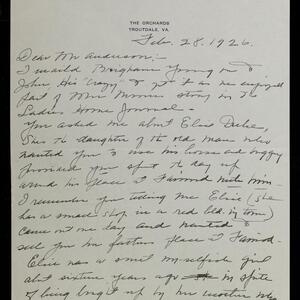 THE ORCHARDS
TROUTDALE, VA.
Feb. 28. 1926.
Dear Mr Anderson:—
I mailed Brigham Young on to
John. His "crazy" to get it as we enjoyed
part of Mrs. story in the
Ladies Home Journal—
You asked me about Elsie
She's the daughter of the old man who
wanted you to use his horse and buggy
provided you spent the day up
around his place & farmed with him—
I remember you telling me Elsie (she
has a small shop in a red bld. in town)
came out one day and wanted to
sell you his factory place & farmed.
Elsie was a smit girl
about sixteen years ago in spite
of being brought up by his mother who